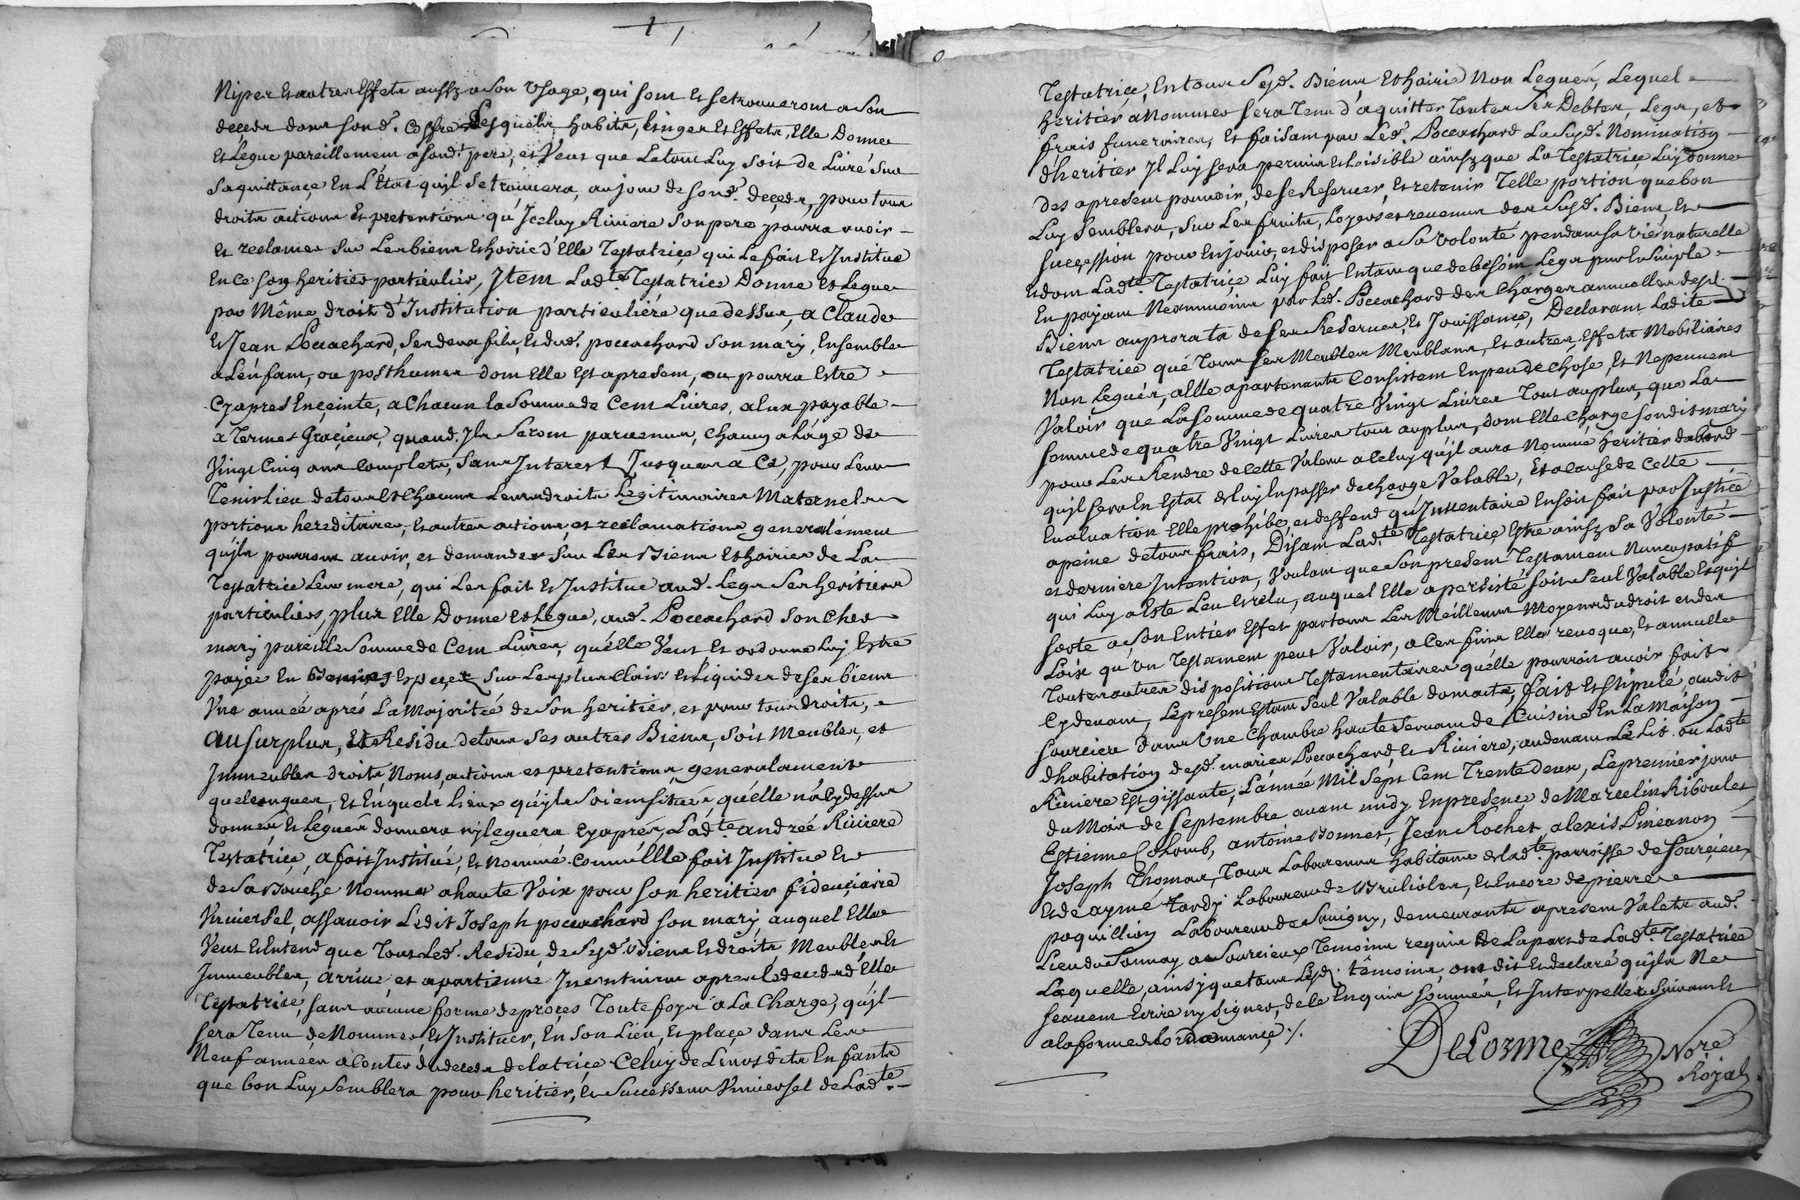 Nipes et autres Effets aussy a Son Usage, qui sont et se trouveront a Son
deceds dans sond. Coffre Lesquels habits, linges et Effets, Elle Donne
et Legue pareillement a sond. pere, et Veut que Le tout Luy soit de Livré Sur
sa quittance En L'Etat quil se trouvera, au jour de sond. deceds, pour tous
droits actions Et pretentions qu'Iceluy Riviere son pere pourra avoir
et reclamer sur Les biens Et hoirie d'Elle Testatrice qui Le fait Et Institue
En ce son heritier particulier, Item Ladte Testatrice Donne et Legue
par Même droit d'Institution particuliére que dessus, a Claude
Et Jean Poccachard, ses deux fils, Et dud. poccachard son mary, Ensemble
a L'énfant, ou posthumes dont Elle Est apresent, ou pourra Estre
Cy apres Enceinte, a Chacun la Somme de Cent Livres, a Eux payable
a Termes Gracieux, quand Ils seront parvenus, Chacun a Lâge de
Vingt Cinq ans Complets, sans Interest Jusques a Ce, pour Leur
Tenir Lieu de tous Et Chacuns Leurs droits Legitimaires Maternels
portions hereditaires, Et autres actions et reclamations generalement
qu'ils pourront avoir, et demander sur Les Biens Et hoiries de La
Testatrice Leur mere, qui Les fait Et Institue aud. Legs Ses heritiers
particuliers, plus Elle Donne Et Legue, aud. Poccachard Son Cher
mary pareille Somme de Cent Livres, qu'elle Veut Et ordonne Luy Estre
payée En Especes Sur Les plus Clairs Et Liquides de ses biens
Une année apres La Majorité de Son heritier, et pour tous droits,
Au Surplus, Et Residu de tous ses autres Biens, soit Meubles, et
Immeubles droits Noms, actions et pretentions generalement
quelconques, Et En quels Lieux qu'ils soient situés qu'elle n'a Cy dessus
donnés, Et Legués donnera ny leguera Cy aprés, Ladte andrée Riviere
Testatrice, a fait Institué, Et Nommé Comm'Elle fait Institue Et
de Sa Bouche Nomme a haute Voix pour Son heritier fiduciaire
Universel, assavoir Ledit Joseph poccachard son mary, auquel Elle
Veut Et Entend que Tout Led. Residu, de Sesd. Biens Et droits, Meubles Et
Immeubles, arrive et apartienne Incontinent apres le deceds d'Elle
Testatrice, sans aucune forme de procés Toute foys á La Charge, qu'il
sera Tenu de Nommer Et Instituer, En Son Lieu, Et place dans Les
Neuf années a Conter du deceds de latrice Celuy de Leurs dits Enfants
que bon Luy Semblera pour heritier, Et Successeur Universel de Ladte
Testatrice, En tous Sesd. Biens Et hoirie Non Legués, Lequel
heritier a Nommer sera Tenu d'aquitter Toutes Ses Debtes, Legs, et
frais funeraires, Et faisant par Led. Poccachard La susd. Nomination
d'heritier Il Luy sera permis Et Loisible ainsy que La Testatrice Luy donne
des apresent pouvoir, de Se Reserver, Et retenir Telle portion que bon
Luy Semblera, sur Les fruits, Loyers et revenus des susd. Biens, Et
succession pour En jouir, et disposer a Sa volonté pendant sa vie naturelle
Et dont Ladte Testatrice Luy fait Entant que de besoin Legs
En payant Neanmoins par Led. Poccachard des Charges annuelles desd.
Biens au prorata de Ses Reserves, Et Jouissance, Declarant Ladite
Testatrice qué Tous ses Meubles Meublans, Et autres Effets Mobiliaires
Non Legués, a Elle apartenants Consistent En peu de Chose, Et Nepeuvent
Valoir que La somme de quatre Vingt Livres Tout auplus, que La
somme de quatre Vingt Livres tout auplus, dont Elle Charge son dit mary
pour Les Rendre de Cette Valeur a Celuy qu'il aura Nommé heritier
qu'il sera En Estat Et Luy En passer decharge Valable, Et a Cause de Cette
Evaluation Elle prohibe, et deffend qu'Inventaire En soit fait par Justice
apeine de tous frais, Disant Ladte Testatrice Estre ainsy sa Volonté
et derniere Intention, Voulant que Son present Testament Nuncupatif
qui Luy a Esté Leu Et relu, auquel Elle a persisté soit Seul Valable Et qu'il
sorte a Son Entier Effet par tous Les Meilleurs Moyens du droit et des
Loix qu'Un Testament peut Valoir, a Ces fins Elle revoque, Et annulle
Toutes autres dispositions Testamentaires qu'elle pourroit avoir fait
Cy devant, Le present Etant Seul Valable, fait Et Stipulé, audit
sourcieu dans Une Chambre haute Servant de Cuisine En La Maison
d'habitation desd. mariés Poccachard, Et Riviere, audevant Le Lit ou Ladte
Riviere Est gissante, L'année Mil Sept Cent Trente deux, Le premier jour
du Mois de Septembre avant midy En presence de Marcelin Riboulet
Estienne Colomb, antoine Bonnet, Jean Rochet, alexis Pineanon
Joseph Thomas, Tous Laboureurs habitans En Ladte parroisse de Sourcieu,
Et de aymé Tardy Laboureur de Brulioles, Et Encore de pierre
paquillion Laboureur de Savigny, demeurants apresent Valets aud.
Lieu du Sonnay a Sourcieux Temoins requis De La part de Ladte Testatrice
Laquelle, ainsy que tous Lesd. témoins, ont dit Et declaré qu'ils Ne
sçavent Ecrire ny signer, de Ce Enquis sommés, Et Interpellés Suivant Et
a la forme de L'ordonnance ./.
DeLorme
Nore
Royal